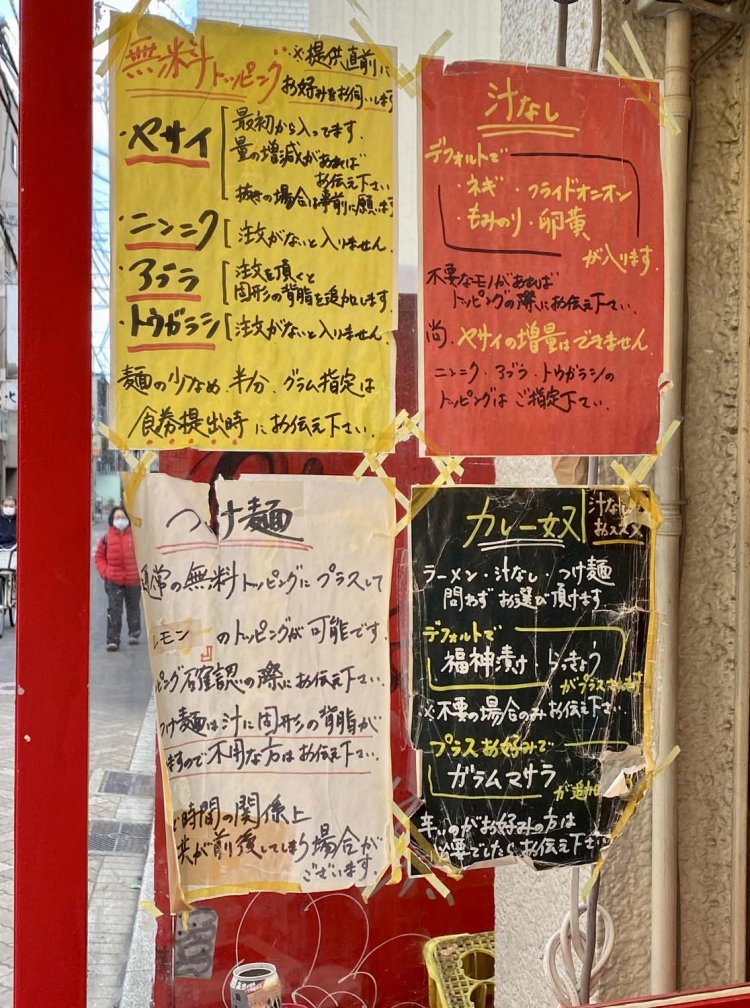 無料トッピング
※提供直前に
お好みをお伺いします
・ヤサイ
最初から入ってます.
量の増減があれば
お伝え下さい
抜きの場合は事前に願います
・ニンニク
注文がないと入りません.
・アブラ
注文を頂くと
固形の背脂を追加します.
・トウガラシ
注文がないと入りません.
麺の少なめ.半分.グラム指定は
食券提出時にお伝え下さい.
汁なし
デフォルトで
・ネギ・フライドオニオン
・もみのり・卵黄
が入ります.
不要なモノがあれば
トッピングの際にお伝え下さい.
尚.ヤサイの増量はできません.
ニンニク・アブラ・トウガラシの
トッピングはご指定下さい.
つけ麺
通常の無料トッピングにプラスして
レモン
のトッピングが可能です.
ピング確認の際にお伝え下さい.
つけ麺は汁に固形の背脂が
ますので不用な方はお伝え下さい.
時間の関係上
が前後してしまう場合が
ございます.
カレー奴
汁なし
おススメ
ラーメン・汁なし・つけ麺
問わずお選び頂けます
デフォルトで
福神漬け・らっきょう
がプラスされます
※不要の場合のみお伝え下さい.
プラスお好みで
ガラムマサラ
が追加
辛いのがお好みの方は
必要でしたらお伝え下さい